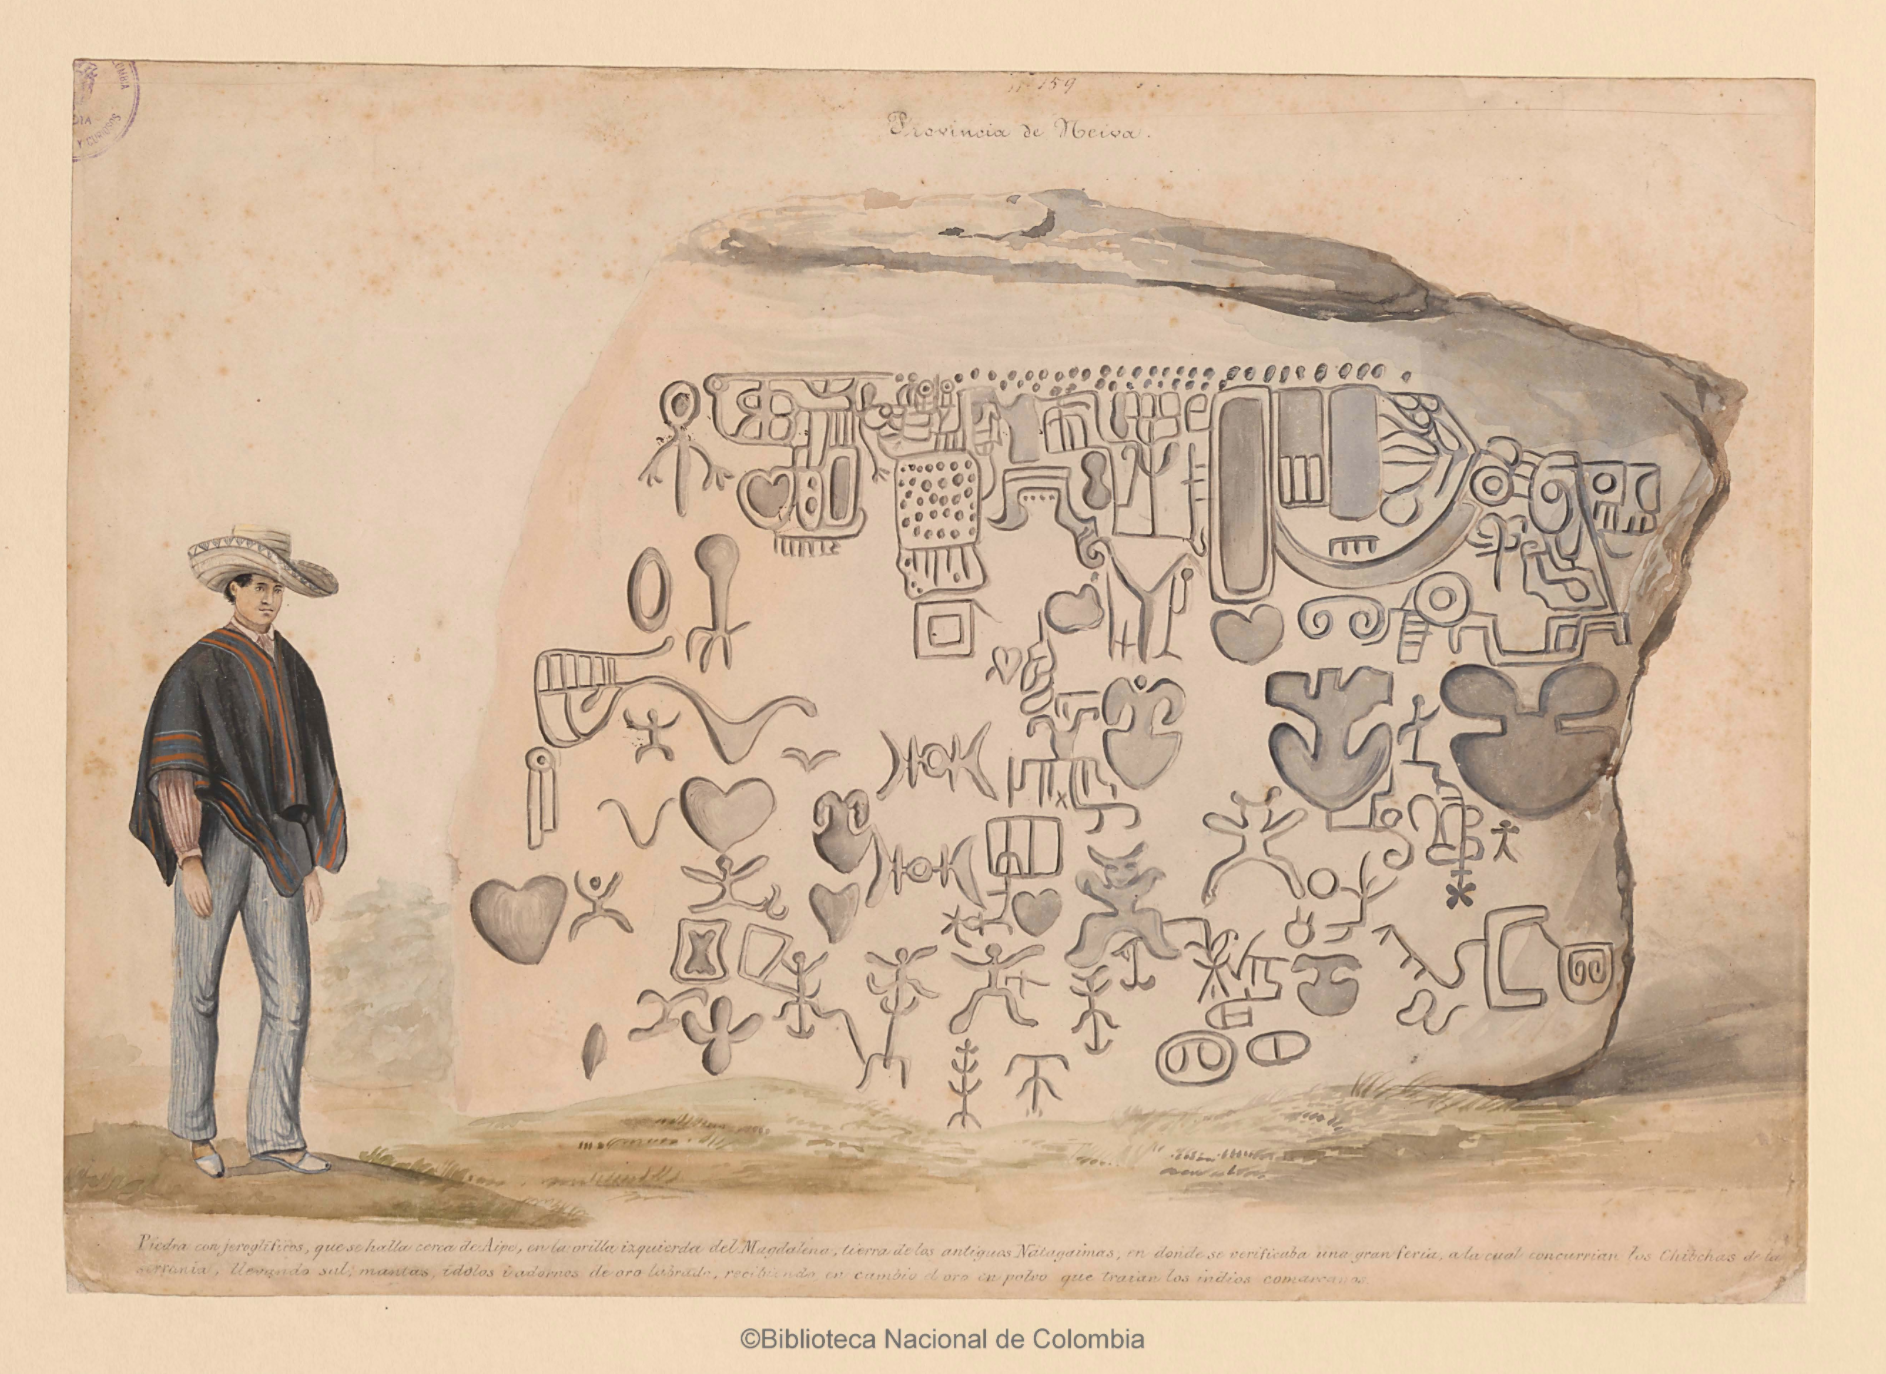 159
Provincia de Neiva.
Piedra con jeroglíficos, que se halla cerca de Aipe, en la orilla izquierda del Magdalena, tierra de los antiguos Natagaimas, en donde se verificaba una gran feria, a la cual concurrian los Chibchas de la
serrania, llevando sal, mantas, ídolos i adornos de oro labrado, recibiendo en cambio el oro en polvo que traian los indios comarcanos.
©Biblioteca Nacional de Colombia